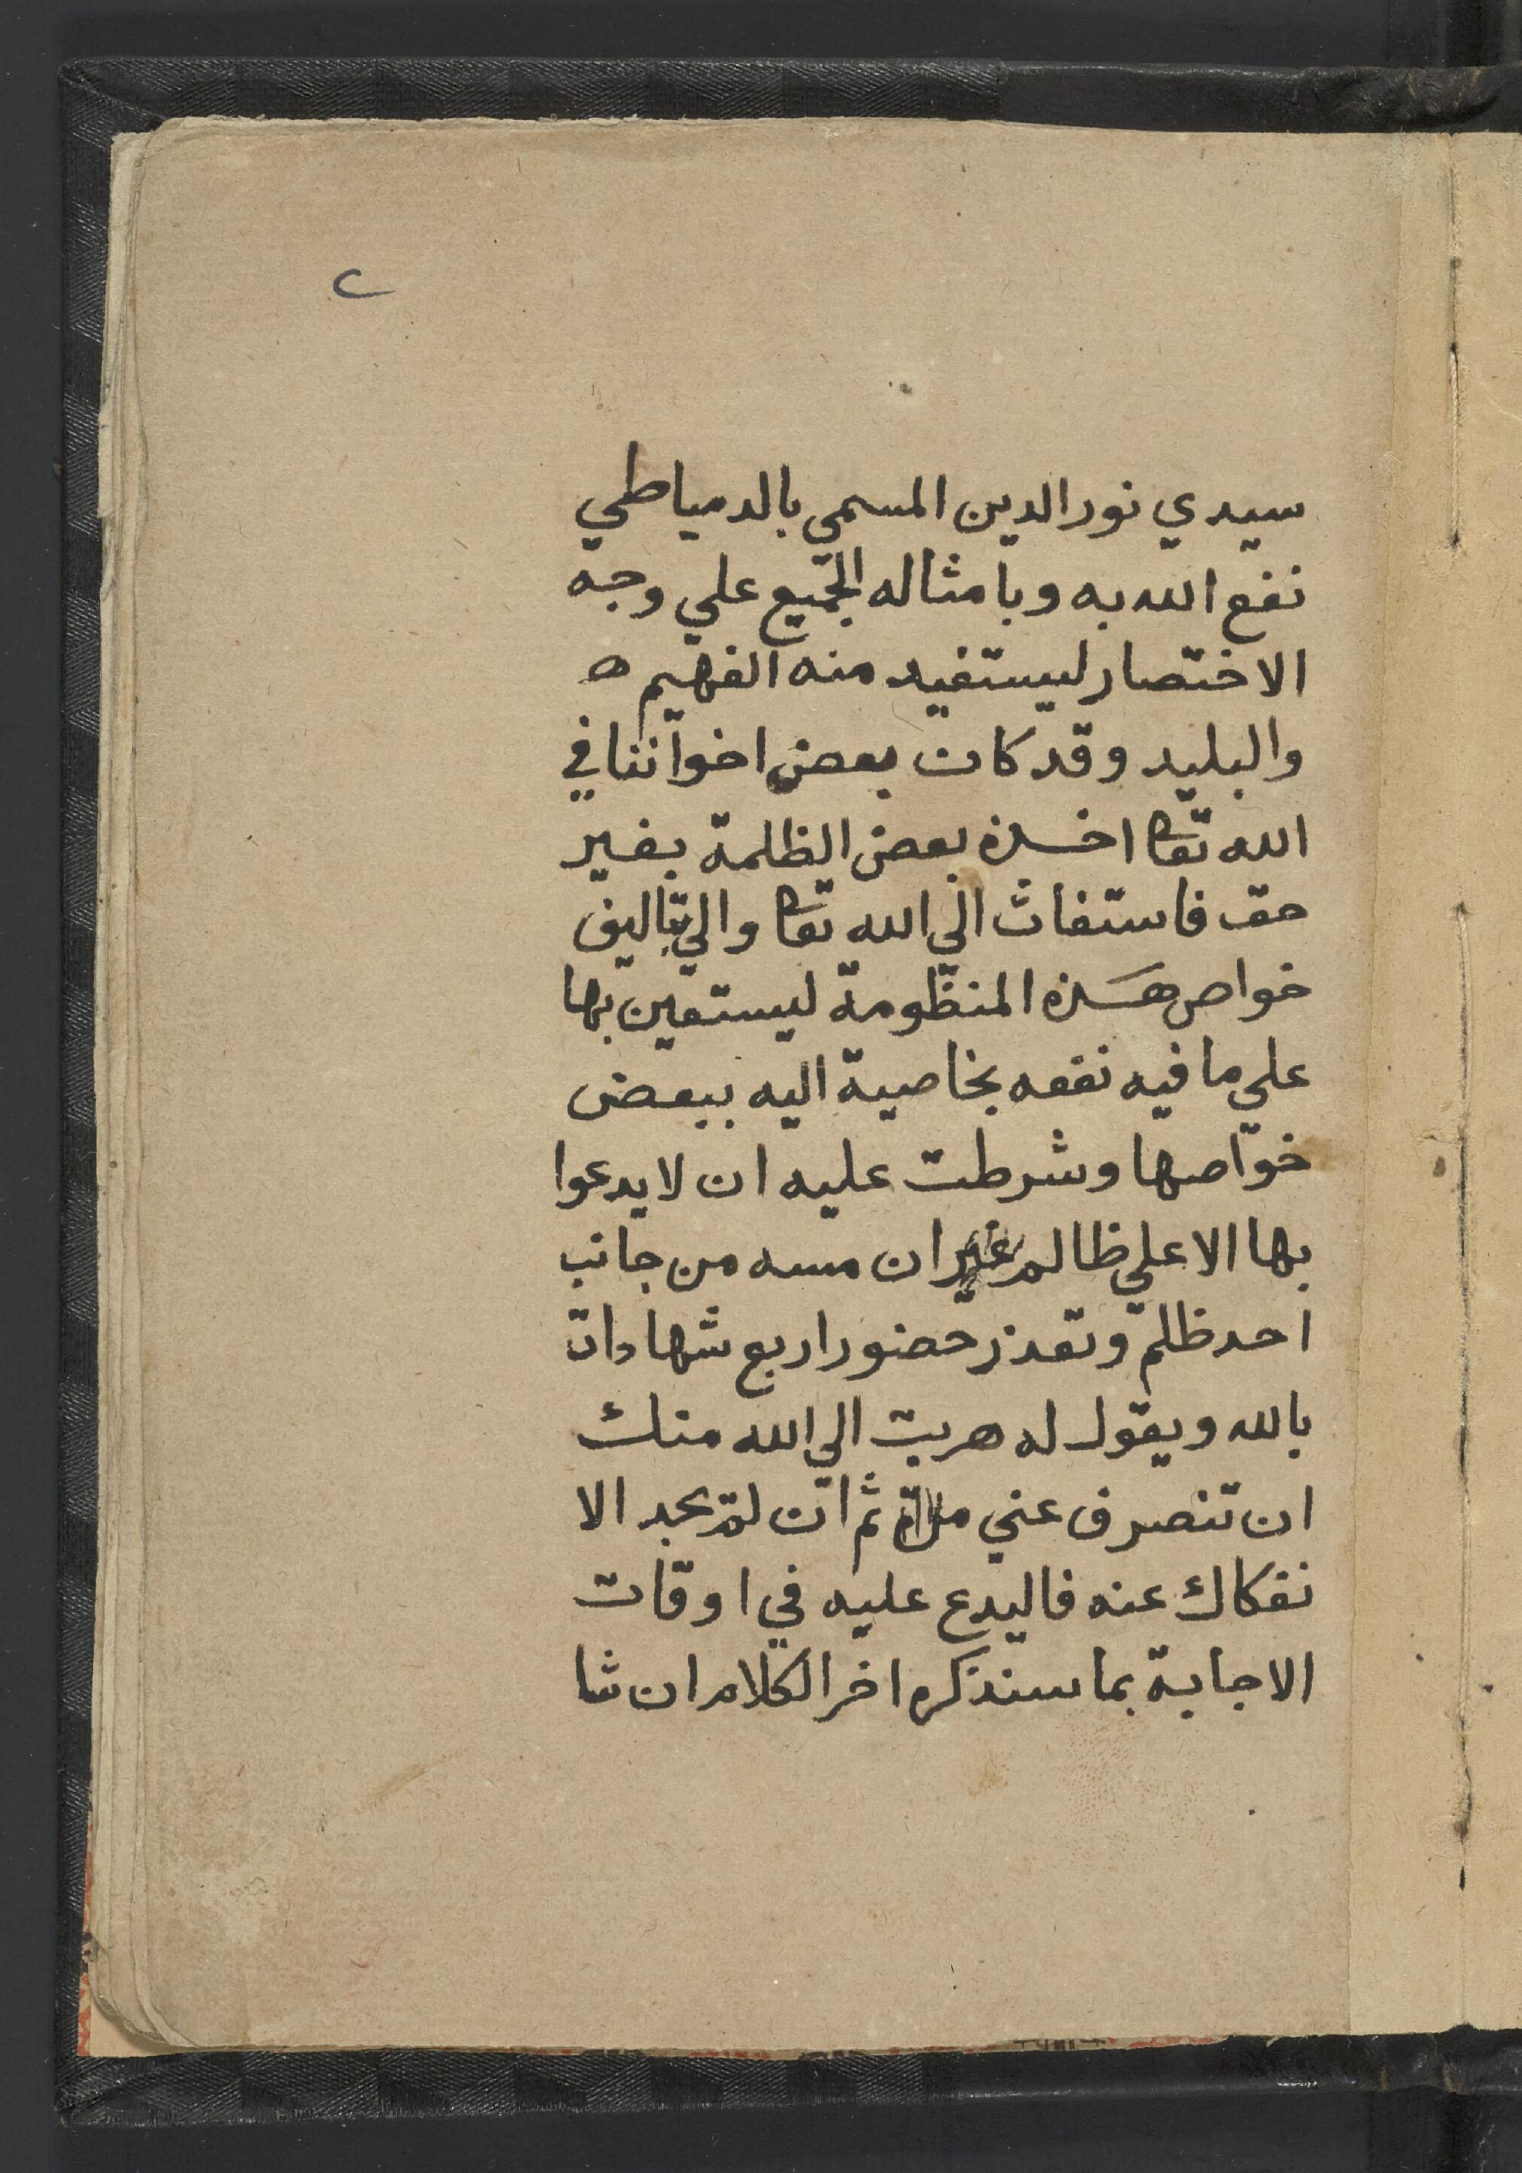 ٢
سيدي نور الدين المسمي بالدمياطي
نفع الله به وبامثاله الجميع علي وجه
الاختصار ليستفيد منه الفهيم ه
والبليد وقد كان بعض اخواننا في
الله تعا اخذه بعض الظلمة بغير
حق فاستغاث الي الله تعا والي تاليف
خواص هذه المنظومة ليستعين بها
علي ما فيه نفعه بخاصية اليه ببعض
خواصها وشرطت عليه ان لا يدعوا
بها الا علي ظالم غير ان مسه من جانب
احد ظلم وتعذر حضور اربع شهادات
بالله ويقول له هربت الي الله منك
ان تنصرف عني ثم ان لم يجد الا
نفكاك عنه فاليدع عليه في اوقات
الاجابة بما سنذكره اخر الكلام ان شا